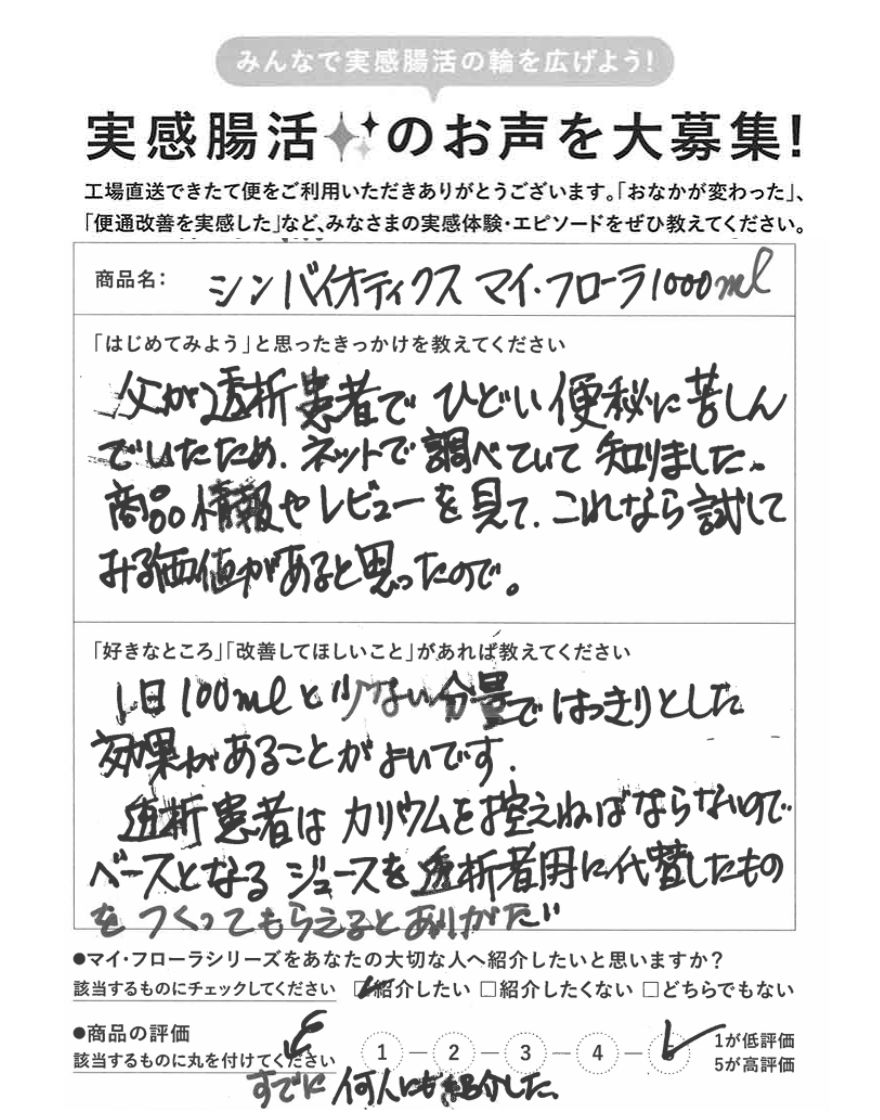 みんなで実感腸活の輪を広げよう!
実感腸活のお声を大募集!
工場直送できたて便をご利用いただきありがとうございます。「おなかが変わった」、
「便通改善を実感した」など、みなさまの実感体験・エピソードをぜひ教えてください。
商品名: シンバイオティクス マイ・フローラ1000ml
「はじめてみよう」と思ったきっかけを教えてください
父が透析患者でひどい便秘に苦しん
でいたため、ネットで調べていて知りました。
商品情報やレビューを見て、これなら試して
みる価値があると思ったので。
「好きなところ」「改善してほしいこと」があれば教えてください
1日100mlと少ない分量ではっきりとした
効果があることがよいです。
透析患者はカリウムを控えねばならないので
ベースとなるジュースを透析者用に代替したもの
をつくってもらえるとありがたい
●マイ・フローラシリーズをあなたの大切な人へ紹介したいと思いますか?
該当するものにチェックしてください □紹介したい □紹介したくない □どちらでもない
●商品の評価
該当するものに丸を付けてください 1 2 3 4 5
1が低評価
5が高評価
すでに何人にも紹介した。